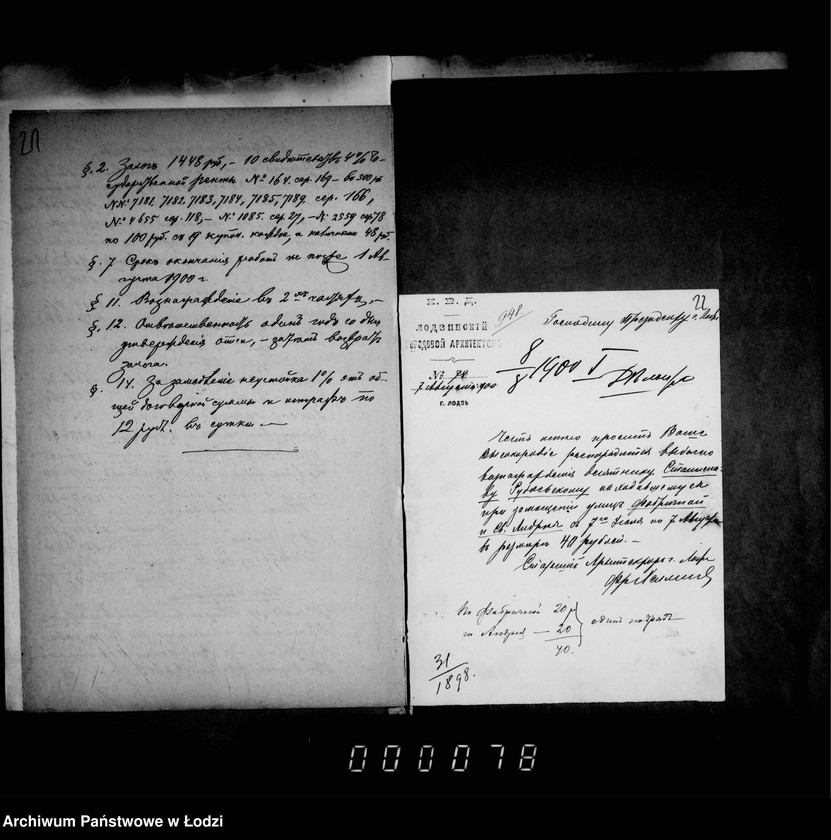 §. 2. Залогъ 1448 руб, – 10 свидѣтельствъ 4% Го-
сударственной ренты № 164. сер. 169 – въ 500 руб
№№ 7181, 7182, 7183, 7184, 7185, 7189. сер. 166,
№ 4655 сер. 118, – № 1085. сер. 27, – № 2559 сер. 78
по 100 руб. съ 19 купон. каждое, и наличными 48 руб.
§. 7 Срокъ окончанія работъ не позже 1 Ав-
густа 1900 г.
§ 11. Вознагражденіе въ 2
§. 12. Отвѣтственность одинъ годъ со дня
утвержденія
залога.
§. 14. За замедленіе неустойка 1% отъ об-
щей договорной суммы и штрафъ по
12 руб. въ сутки —
22
М. В. Д.
ЛОДЗИНСКІЙ
ГОРОДОВОЙ АРХИТЕКТОРЪ
941
Господину Президенту г. Лодзи
8/8 1900 V
№
7 Августа 1900
г. ЛОДЗЬ
Честь имѣю просить Ваше
Высокородіе распорядиться выдачею
вознагражденія десятнику Станисла-
ву наблюдавшему
при замощеніи улицъ Фабричной
и Св. Андрея съ 7го Іюля по 7 Августа
въ размѣрѣ 40 рублей. –
Старшій Архитекторъ г. Лодзи
По Фабричной 20
по Андрея — 20
40.
одинъ подрядъ
31/1898.
000078
Archiwum Państwowe w Łodzi